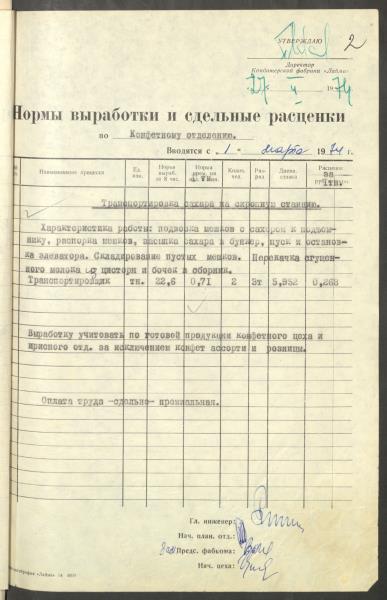 УТВЕРЖДАЮ
2
Директор
Кондитерской фабрики «Лайма»
27 II 1974
Нормы выработки и сдельные расценки
по Конфетному отделению.
Вводятся с 1 марта 1974 г.
Наименование процесса Ед. изм. Норма выраб. за 8 час. Норма врем. на Колич. чел. Раз-ряд Дневн. ставка Расценка за
Транспортировка сахара на сиропную станцию.
Характеристика работы: подвозка мешков с сахором к подъем-
нику, распорка мешков, засыпка сахара в бункер, пуск и останов-
ка элеватора. Складирование пустых мешков. Перекачка сгущен-
ного молока из цистерн и бочек в сборник.
Транспортировщик тн. 22,6 0,71 2 3т 5,952 0,263
Выработку учитовать по готовой продукции конфетного цеха и
ирисного отд. за исключением конфет ассорти и розницы.
Оплата труда -сдельно- премиальная.
Гл. инженер:
Нач. план. отд.:
Предс. фабкома:
Нач. цеха: